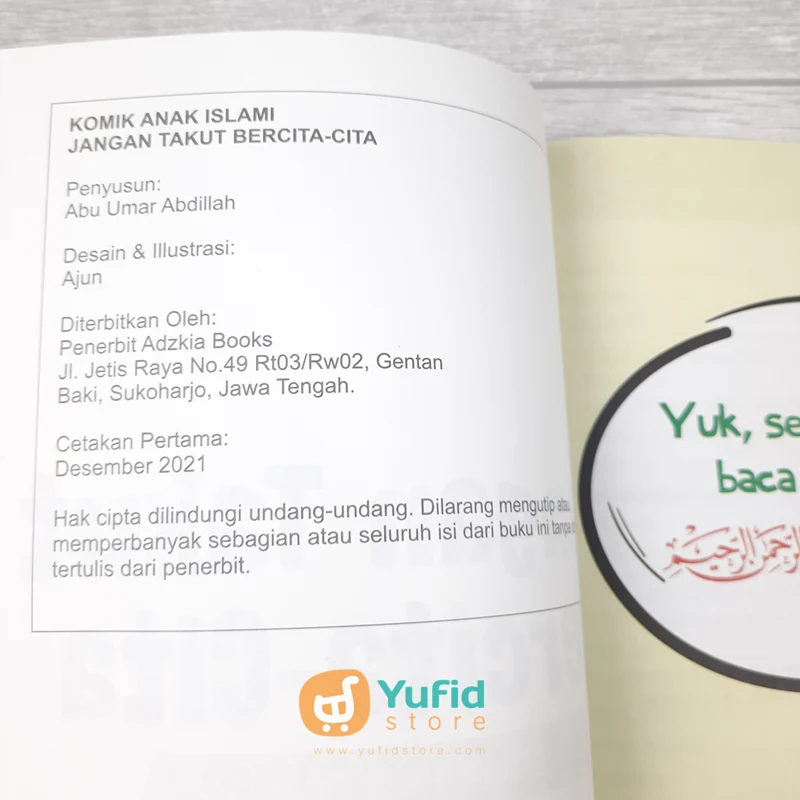 KOMIK ANAK ISLAMI
JANGAN TAKUT BERCITA-CITA
Penyusun:
Abu Umar Abdillah
Desain & Illustrasi:
Ajun
Diterbitkan Oleh:
Penerbit Adzkia Books
Jl. Jetis Raya No.49 Rt03/Rw02, Gentan
Baki, Sukoharjo, Jawa Tengah.
Cetakan Pertama:
Desember 2021
Hak cipta dilindungi undang-undang. Dilarang mengutip atau
memperbanyak sebagian atau seluruh isi dari buku ini tanpa
tertulis dari penerbit.
Yuk, se
baca
الرحمن الرحيم
Yufid
store
www.yufidstore.com